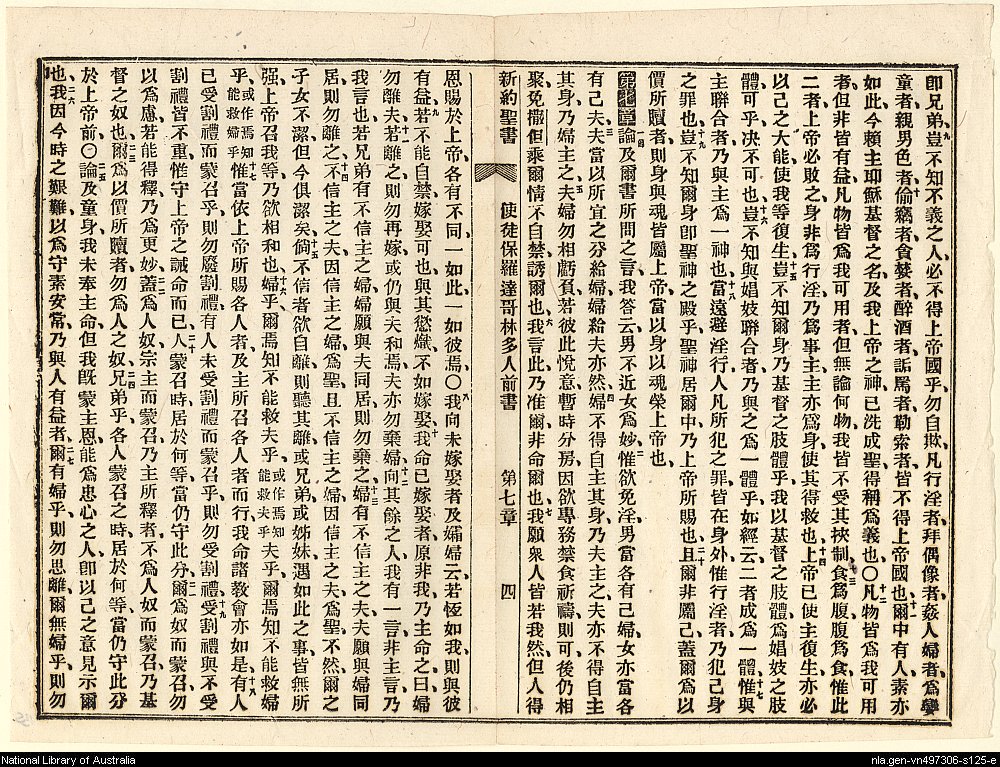 卽兄弟九豈不知不義之人必不得上帝國乎勿自欺凡行淫者拜偶像者姦人婦者爲孌
童者親男色者十偷竊者貪婪者醉酒者詬罵者勒索者皆不得上帝國也十一爾中有人素亦
如此今賴主耶穌基督之名及我上帝之神已洗成聖得稱爲義也〇十二凡物皆爲我可用
者但非皆有益凡物皆爲我可用者但無論何物我皆不受其挾制十三食爲腹腹爲食惟此
二者上帝必敗之身非爲行淫乃爲事主主亦爲身使其得救也十四上帝已使主復生亦必
以己之大能使我等復生十五豈不知爾身乃基督之肢體乎我以基督之肢體爲娼妓之肢
體可乎決不可也十六豈不知與娼妓聯合者乃與之爲一體乎如經云二者成爲一體十七惟與
主聯合者乃與主爲一神也十八當遠避淫行人凡所犯之罪皆在身外惟行淫者乃犯己身
之罪也十九豈不知爾身卽聖神之殿乎聖神居爾中乃上帝所賜也且爾非屬己二十蓋爾爲以
價所贖者則身與魂皆屬上帝當以身以魂榮上帝也
第七章一論及爾書所問之言我答云男不近女爲妙二惟欲免淫男當各有己婦女亦當各
有己夫三夫當以所宜之分給婦婦給夫亦然四婦不得自主其身乃夫主之夫亦不得自主
其身乃婦主之五夫婦勿相虧負若彼此悅意暫時分房因欲專務禁食祈禱則可後仍相
聚免撒但乘爾情不自禁誘爾也六我言此乃准爾非命爾也七我願衆人皆若我然但人得
新約聖書 使徒保羅達哥林多人前書 第七章 四
恩賜於上帝各有不同一如此一如彼焉〇八我向未嫁娶者及孀婦云若恆如我則與彼
有益九若不能自禁嫁娶可也與其慾燬不如嫁娶十我命已嫁娶者原非我乃主命之曰婦
勿離夫十一若離之則勿再嫁或仍與夫和焉夫亦勿棄婦十二向其餘之人我有一言非主言乃
我言也若兄弟有不信主之婦婦願與夫同居則勿棄之十三婦有不信主之夫夫願與婦同
居則勿離之十四不信主之夫因信主之婦爲聖且不信主之婦因信主之夫爲聖不然爾之
子女不潔但今俱潔矣十五倘不信者欲自離則聽其離或兄弟或姊妹遇如此之事皆無所
强上帝召我等乃欲相和也十六婦乎爾焉知不能救夫乎或作焉知能救夫乎夫乎爾焉知不能救婦
乎或作焉知能救婦乎十七惟當依上帝所賜各人者及主所召各人者而行我命諸教會亦如是十八有人
已受割禮而蒙召乎則勿廢割禮有人未受割禮而蒙召乎則勿受割禮十九受割禮與不受
割禮皆不重惟守上帝之誡命而已二十人蒙召時居於何等當仍守此分二一爾爲奴而蒙召勿
以爲慮若能得釋乃爲更妙二二蓋爲人奴宗主而蒙召乃主所釋者不爲人奴而蒙召乃基
督之奴也二三爾爲以價所贖者勿爲人之奴二四兄弟乎各人蒙召之時居於何等當仍守此分
於上帝前〇二五論及童身我未奉主命但我旣蒙主恩能爲忠心之人卽以己之意見示爾
也二六我因今時之艱難以爲守素安常乃與人有益者二七爾有婦乎則勿思離爾無婦乎則勿
National Library of Australia
nla.gen-vn497306-s125-e